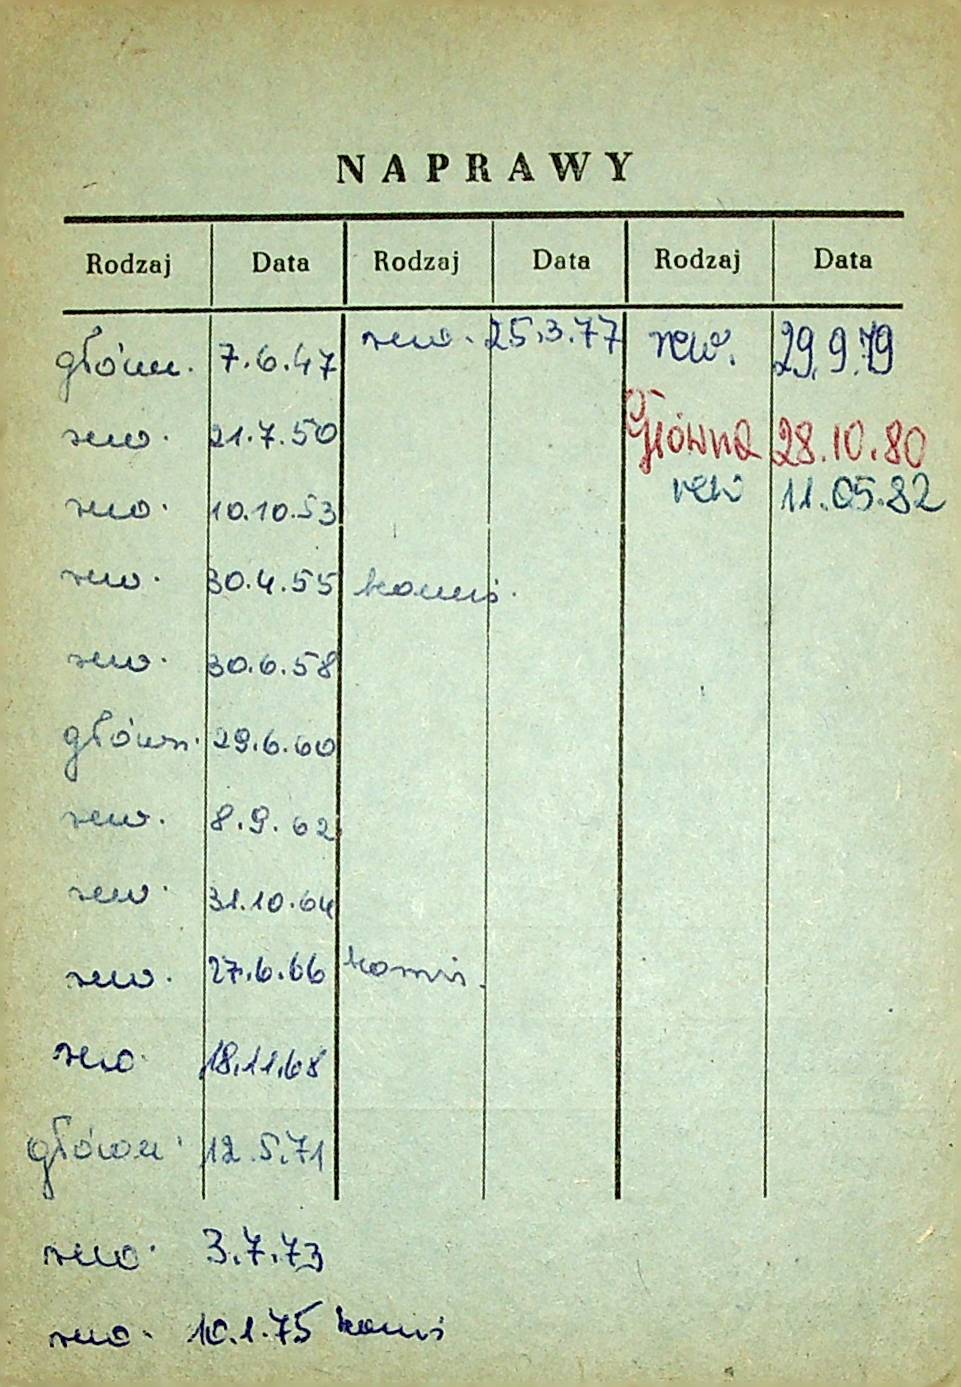 NAPRAWY
Rodzaj Data Rodzaj Data Rodzaj Data
główn. 7.6.47 rew. 25.3.77 rew. 29.9.79
rew. 21.7.50 Główna 28.10.80
rew 11.05.82
rew. 10.10.53
rew. 30.4.55 komis.
rew. 30.6.58
główn. 29.6.60
rew. 8.9.62
rew. 31.10.64
rew. 27.6.66 komis.
rew. 18.11.68
główn. 12.5.71
rew. 3.7.73
rew. 10.1.75 komis